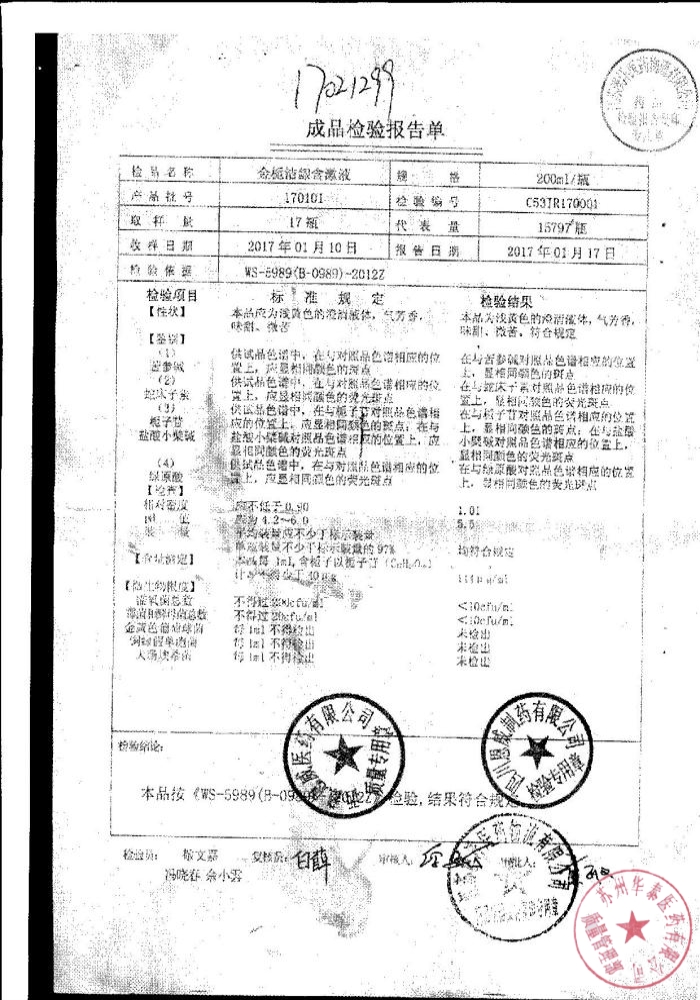 17021299
成品检验报告单
检品名称 金栀洁龈含漱液 规格 200ml/瓶
产品批号 170101 检验编号 C53JR170001
取样量 17瓶 代表量 15797瓶
收样日期 2017年01月10日 报告日期 2017年01月17日
检验依据 WS-5989(B-0989)-2012Z
检验项目 标准规定 检验结果
【性状】 本品应为浅黄色的澄清液体,气芳香, 本品为浅黄色的澄清液体,气芳香,
味甜、微苦 味甜、微苦,符合规定
【鉴别】
(1) 供试品色谱中,在与对照品色谱相应的位 在与苦参碱对照品色谱相应的位置
苦参碱 置上,应显相同颜色的斑点 上,显相同颜色的斑点
(2) 供试品色谱中,在与对照品色谱相应的位 在与蛇床子素对照品色谱相应的位
蛇床子素 置上,应显相同颜色的荧光斑点 置上,显相同颜色的荧光斑点
(3) 供试品色谱中,在与栀子苷对照品色谱相 在与栀子苷对照品色谱相应的位置
栀子苷 应的位置上,应显相同颜色的斑点;在与 上,显相同颜色的斑点;在与盐酸
盐酸小檗碱 盐酸小檗碱对照品色谱相应的位置上,应 小檗碱对照品色谱相应的位置上,
显相同颜色的荧光斑点 显相同颜色的荧光斑点
(4) 供试品色谱中,在与对照品色谱相应的位 在与绿原酸对照品色谱相应的位置
绿原酸 置上,应显相同颜色的荧光斑点 上,显相同颜色的荧光斑点
【检查】
相对密度 应不低于0.90 1.01
pH值 应为4.2~6.0 5.5
装量 平均装量应不少于标示装量
单瓶装量不少于标示装量的97% 均符合规定
【含量测定】 本品每1ml,含栀子以栀子苷
计 不得少于40μg μg/ml
【微生物限度】
需氧菌总数 不得过200cfu/ml <10cfu/ml
霉菌和酵母菌总数 不得过20cfu/ml <10cfu/ml
金黄色葡萄球菌 每1ml不得检出 未检出
铜绿假单胞菌 每1ml不得检出 未检出
大肠埃希菌 每1ml不得检出 未检出
检验结论:
本品按《WS-5989(B-0989)-2012Z》检验,结果符合规定
检验员: 敬文嘉 复核员: 白薛 审核人: 批准人:
冯晓春 余小云
医药有限公司
质量专用章
四川恩威制药有限公司
检验专用章
苏州华泰医药有限公司